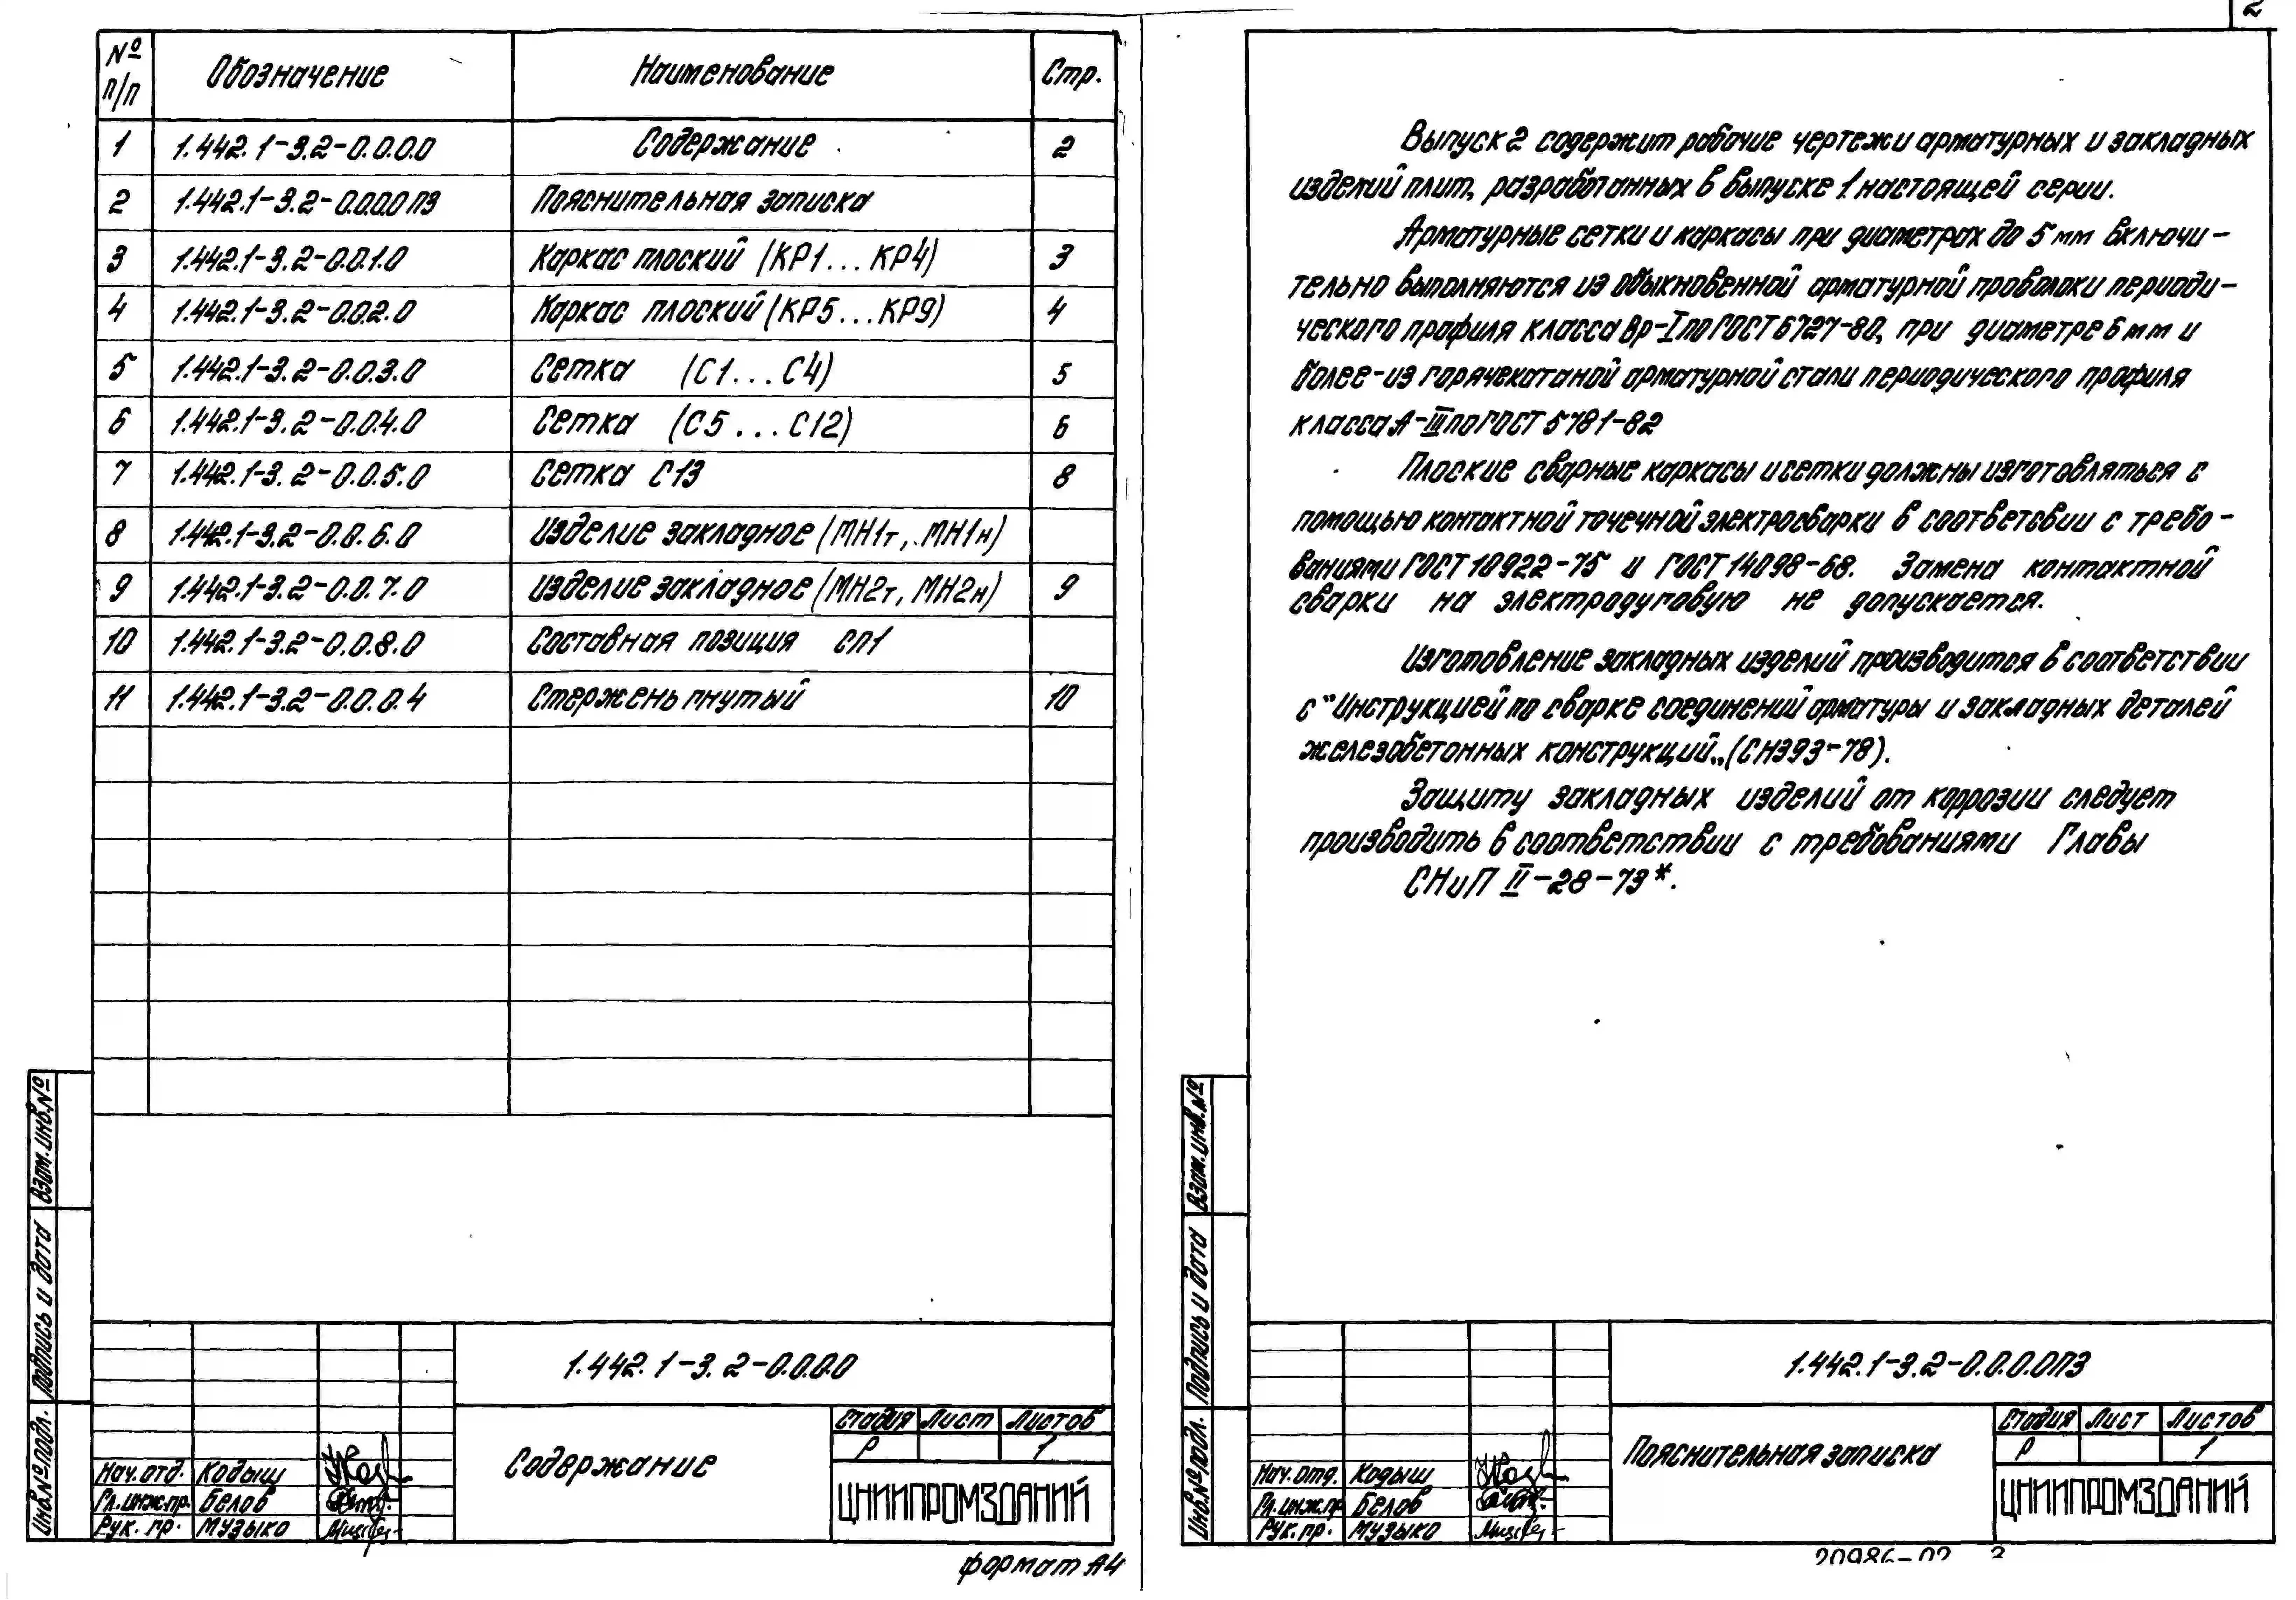 № п/п Обозначение Наименование Стр.
1 1.442.1-3.2-0.0.0.0 Содержание 2
2 1.442.1-3.2-0.0.0.0ПЗ Пояснительная записка
3 1.442.1-3.2-0.0.1.0 Каркас плоский (КР1...КР4) 3
4 1.442.1-3.2-0.0.2.0 Каркас плоский (КР5...КР9) 4
5 1.442.1-3.2-0.0.3.0 Сетка (С1...С4) 5
6 1.442.1-3.2-0.0.4.0 Сетка (С5...С12) 6
7 1.442.1-3.2-0.0.5.0 Сетка С13 8
8 1.442.1-3.2-0.0.6.0 Изделие закладное (МН1т, МН1н)
9 1.442.1-3.2-0.0.7.0 Изделие закладное (МН2т, МН2н) 9
10 1.442.1-3.2-0.0.8.0 Составная позиция СП1
11 1.442.1-3.2-0.0.0.4 Стержень гнутый 10
Взам. инв. №
Подпись и дата
Инв. № подл.
1.442.1-3.2-0.0.0.0
Содержание
Стадия Лист Листов
Р 1
ЦНИИПРОМЗДАНИЙ
Нач. отд. Кодыш
Гл. инж. пр. Белов
Рук. гр. Музыко
формат А4
2
Выпуск 2 содержит рабочие чертежи арматурных и закладных
изделий плит, разработанных в выпуске 1 настоящей серии.
Арматурные сетки и каркасы при диаметрах до 5 мм включи-
тельно выполняются из обыкновенной арматурной проволоки периоди-
ческого профиля класса Вр-I по ГОСТ 6727-80, при диаметре 6 мм и
более-из горячекатаной арматурной стали периодического профиля
класса А-III по ГОСТ 5781-82
Плоские сварные каркасы и сетки должны изготовляться с
помощью контактной точечной электросварки в соответсвии с требо-
ваниями ГОСТ 10922-75 и ГОСТ 14098-68. Замена контактной
сварки на электродуговую не допускается.
Изготовление закладных изделий производится в соответствии
с "Инструкцией по сварке соединений арматуры и закладных деталей
железобетонных конструкций„ (СН393-78).
Защиту закладных изделий от коррозии следует
производить в соответствии с требованиями Главы
СНиП II-28-73*.
Взам. инв. №
Подпись и дата
Инв. № подл.
1.442.1-3.2-0.0.0.0ПЗ
Пояснительная записка
Стадия Лист Листов
Р 1
ЦНИИПРОМЗДАНИЙ
Нач. отд. Кодыш
Гл. инж. пр. Белов
Рук. гр. Музыко
20986-02 3